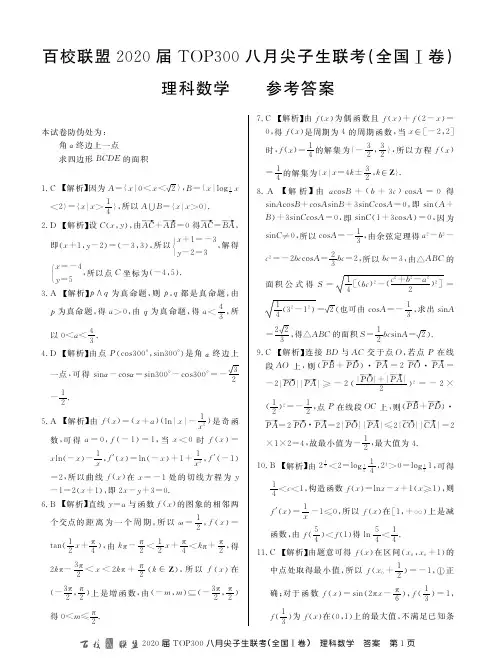 百校联盟 2020 届 TOP300 八月尖子生联考(全国Ⅰ卷)
理科数学 参考答案
本试卷防伪处为:
角 α 终边上一点
求四边形 BCDE 的面积
1. C 【解析】因为 A={x|0<x<√2}, B={x|log_{1/2} x
<2}={x|x>1/4}, 所以 A∪B={x|x>0}.
2. D 【解析】设 C(x,y), 由 \overrightarrow{AC}+\overrightarrow{AB}=0 得 \overrightarrow{AC}=\overrightarrow{BA},
即(x+1,y-2)=(-3,3), 所以 {x+1=-3, y-2=3, 解得
{x=-4, y=5, 所以点 C 坐标为(-4,5).
3. A 【解析】p∧q 为真命题, 则 p,q 都是真命题, 由
p 为真命题, 得 a>0, 由 q 为真命题, 得 a<4/3, 所
以 0<a<4/3.
4. D 【解析】由点 P(cos300°,sin300°)是角 α 终边上
一点, 可得 sinα-cosα=sin300°-cos300°=-√3/2
-1/2.
5. A 【解析】由 f(x)=(x+a)(ln|x|-1/x²)是奇函
数, 可得 a=0, f(-1)=1, 当 x<0 时 f(x)=
xln(-x)-1/x, f′(x)=ln(-x)+1+1/x², f′(-1)
=2, 所以曲线 f(x)在 x=-1 处的切线方程为 y
-1=2(x+1), 即 2x-y+3=0.
6. B 【解析】直线 y=a 与函数 f(x)的图象的相邻两
个交点的距离为一个周期, 所以 ω=1/2, f(x)=
tan(1/2 x+π/4), 由 kπ-π/2<1/2 x+π/4<kπ+π/2, 得
2kπ-3π/2<x<2kπ+π/2(k∈Z), 所以 f(x)在
(-3π/2,π/2)上是增函数, 由(-m,m)⊆(-3π/2,π/2)
得 0<m≤π/2.
7. C 【解析】由 f(x)为偶函数且 f(x)+f(2-x)=
0, 得 f(x)是周期为 4 的周期函数, 当 x∈[-2,2]
时, f(x)=1/4 的解集为{-3/2,3/2}, 所以方程 f(x)
=1/4 的解集为{x|x=4k±3/2,k∈Z}.
8. A 【解析】由 acosB+(b+3c)cosA=0 得
sinAcosB+cosAsinB+3sinCcosA=0, 即 sin(A+
B)+3sinCcosA=0, 即 sinC(1+3cosA)=0, 因为
sinC≠0, 所以 cosA=-1/3, 由余弦定理得 a²-b²-
c²=-2bccosA=2/3 bc=2, 所以 bc=3; 由△ABC 的
面积公式得 S=√(1/4[(bc)²-((c²+b²-a²)/2)²])=
√(1/4(3²-1²))=√2(也可由 cosA=-1/3, 求出 sinA
=2√2/3, 得△ABC 的面积 S=1/2 bcsinA=√2).
9. C 【解析】连接 BD 与 AC 交于点 O, 若点 P 在线
段 AO 上, 则(\overrightarrow{PB}+\overrightarrow{PD})·\overrightarrow{PA}=2\overrightarrow{PO}·\overrightarrow{PA}=
-2|\overrightarrow{PO}||\overrightarrow{PA}|≥-2((|\overrightarrow{PO}|+|\overrightarrow{PA}|)/2)²=-2×
(1/2)²=-1/2, 点 P 在线段 OC 上, 则(\overrightarrow{PB}+\overrightarrow{PD})·
\overrightarrow{PA}=2\overrightarrow{PO}·\overrightarrow{PA}=2|\overrightarrow{PO}||\overrightarrow{PA}|≤2|\overrightarrow{CO}||\overrightarrow{CA}|=2
×1×2=4, 故最小值为-1/2, 最大值为 4.
函数, 由 f(5/4)<f(1)得 ln 5/4<1/4.
11. C 【解析】由题意可得 f(x)在区间(x₀,x₀+1)的
中点处取得最小值, 所以 f(x₀+1/2)=-1, ①正
确; 对于函数 f(x)=sin(2πx-π/6), f(1/3)=1,
f(1/3)为 f(x)在(0,1)上的最大值, 不满足已知条
百校联盟 2020 届 TOP300 八月尖子生联考(全国Ⅰ卷) 理科数学 答案 第 1 页